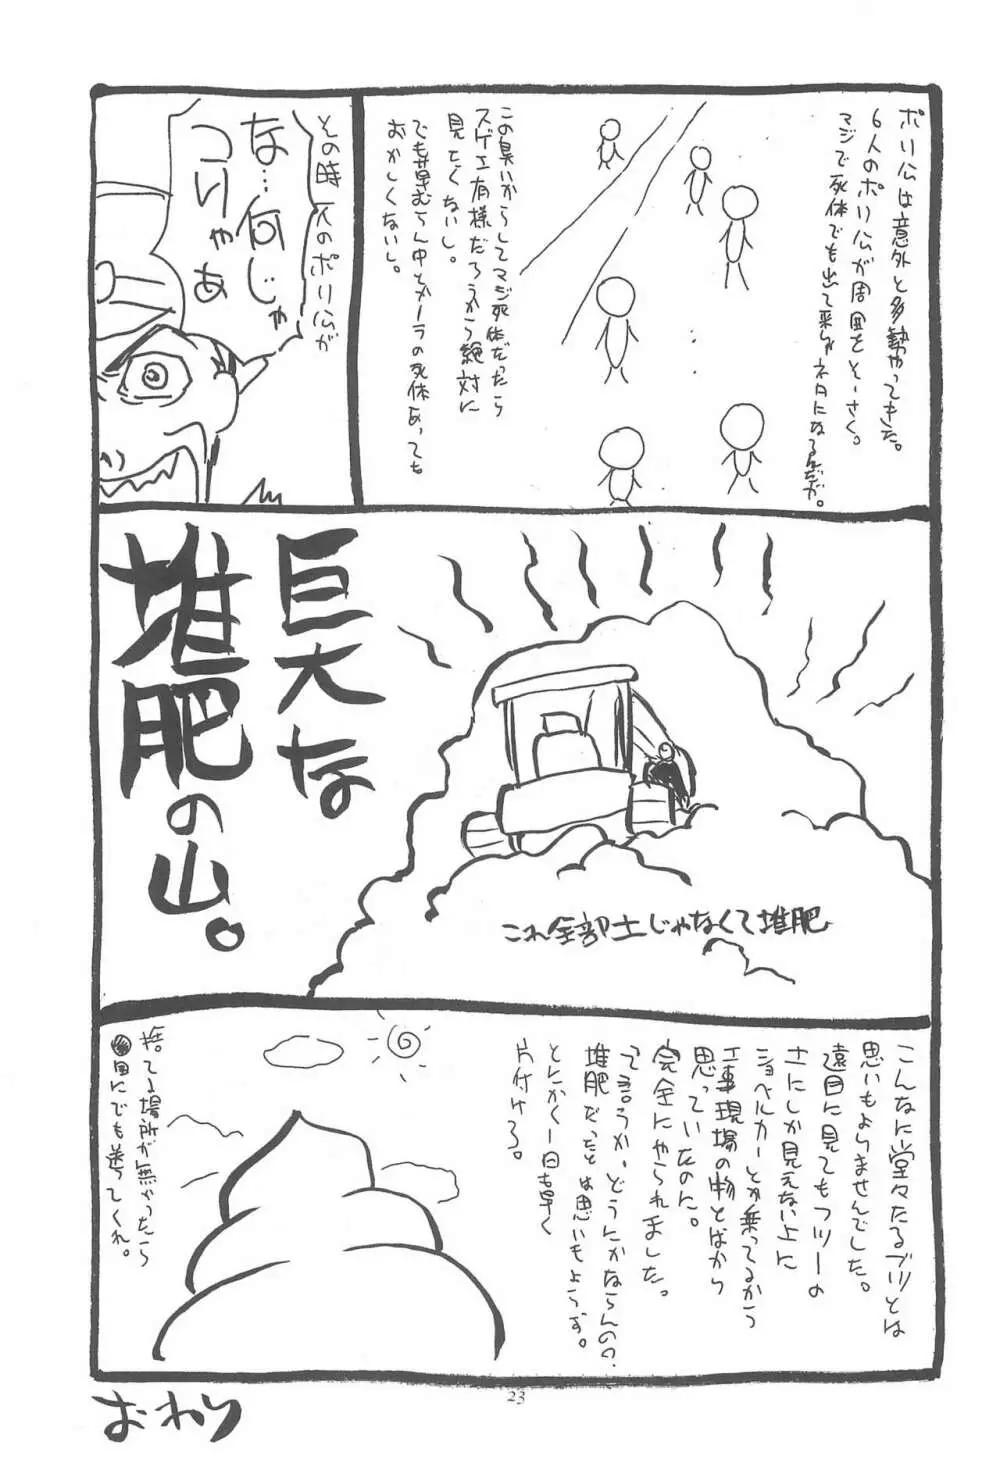 ポリ公は意外と多勢やってきた。
6人のポリ公が周囲をそーさく。
マジで死体でも出て来りゃネタになるんだが。
この臭いからしてマジ死体だったら
スゲェ有様だろうから絶対に
見たくないし。
でも草むらん中とかーラの死体あっても
おかしくないし。
その時一人のポリ公が
な…何じゃ
こりゃあ
巨大な
堆肥の山。
これ全部土じゃなくて堆肥
こんなに堂々たるブツとは
思いもよりませんでした。
遠目に見てもフツーの
土にしか見えない上に
ショベルカーとか乗ってるから
工事現場の物とばかり
思っていたのに。
完全にやられました。
って言うか、どうにかならんの?
堆肥だったとは思いもよらず。
とにかく一日も早く
片付けろ。
捨てる場所が無かったら
国にでも送ってくれ。
23
おわり